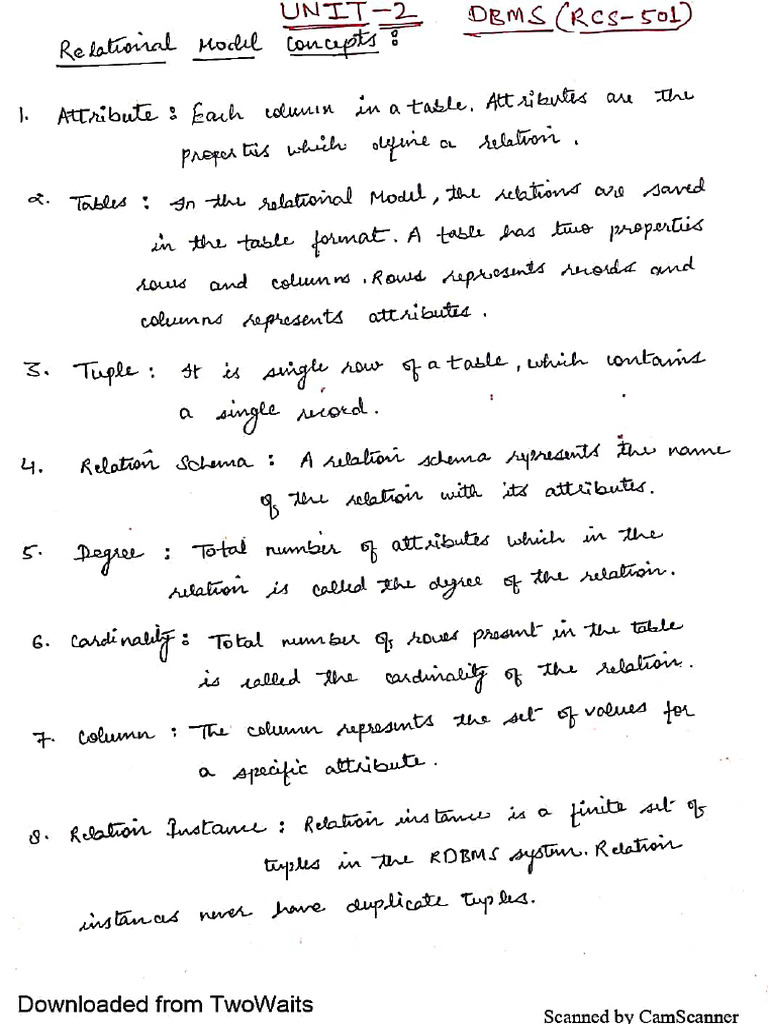 UNIT-2 DBMS (RCS-501)
Relational Model Concepts:
1. Attribute: Each column in a table. Attributes are the
properties which define a relation.
2. Tables: In the relational Model, the relations are saved
in the table format. A table has two properties
rows and columns. Rows represents records and
columns represents attributes.
3. Tuple: It is single row of a table, which contains
a single record.
4. Relation Schema: A relation schema represents the name
of the relation with its attributes.
5. Degree: Total number of attributes which in the
relation is called the degree of the relation.
6. Cardinality: Total number of rows present in the table
is called the cardinality of the relation.
7. Column: The column represents the set of values for
a specific attribute.
8. Relation Instance: Relation instance is a finite set of
tuples in the RDBMS system. Relation
instances never have duplicate tuples.
Downloaded from TwoWaits
Scanned by CamScanner